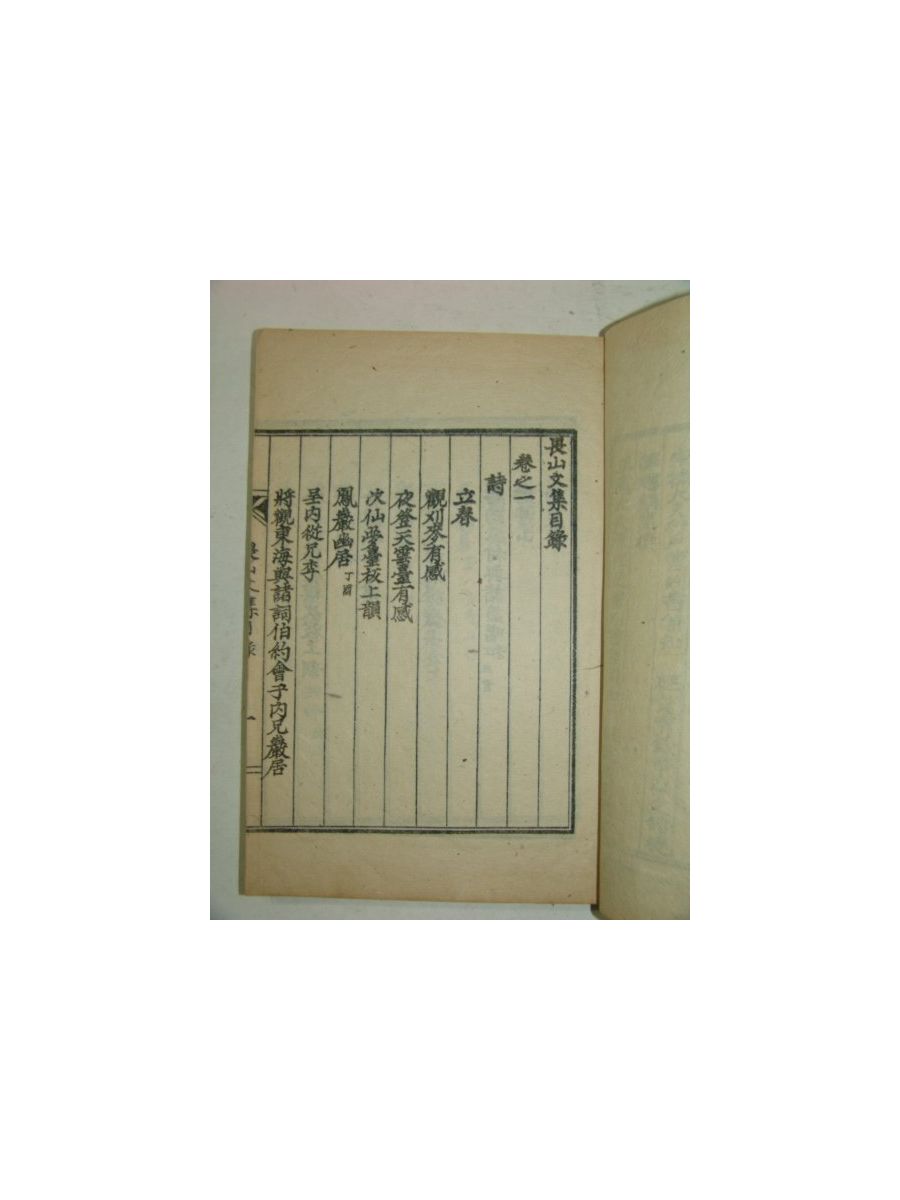 畏山文集目錄
卷之一
詩
立春
觀刈麥有感
夜登天雲臺有感
次仙夢臺板上韻
鳳巖幽居 丁酉
呈內從兄李
將觀東海與諸詞伯約會于內兄巖居
畏山文集目錄 一